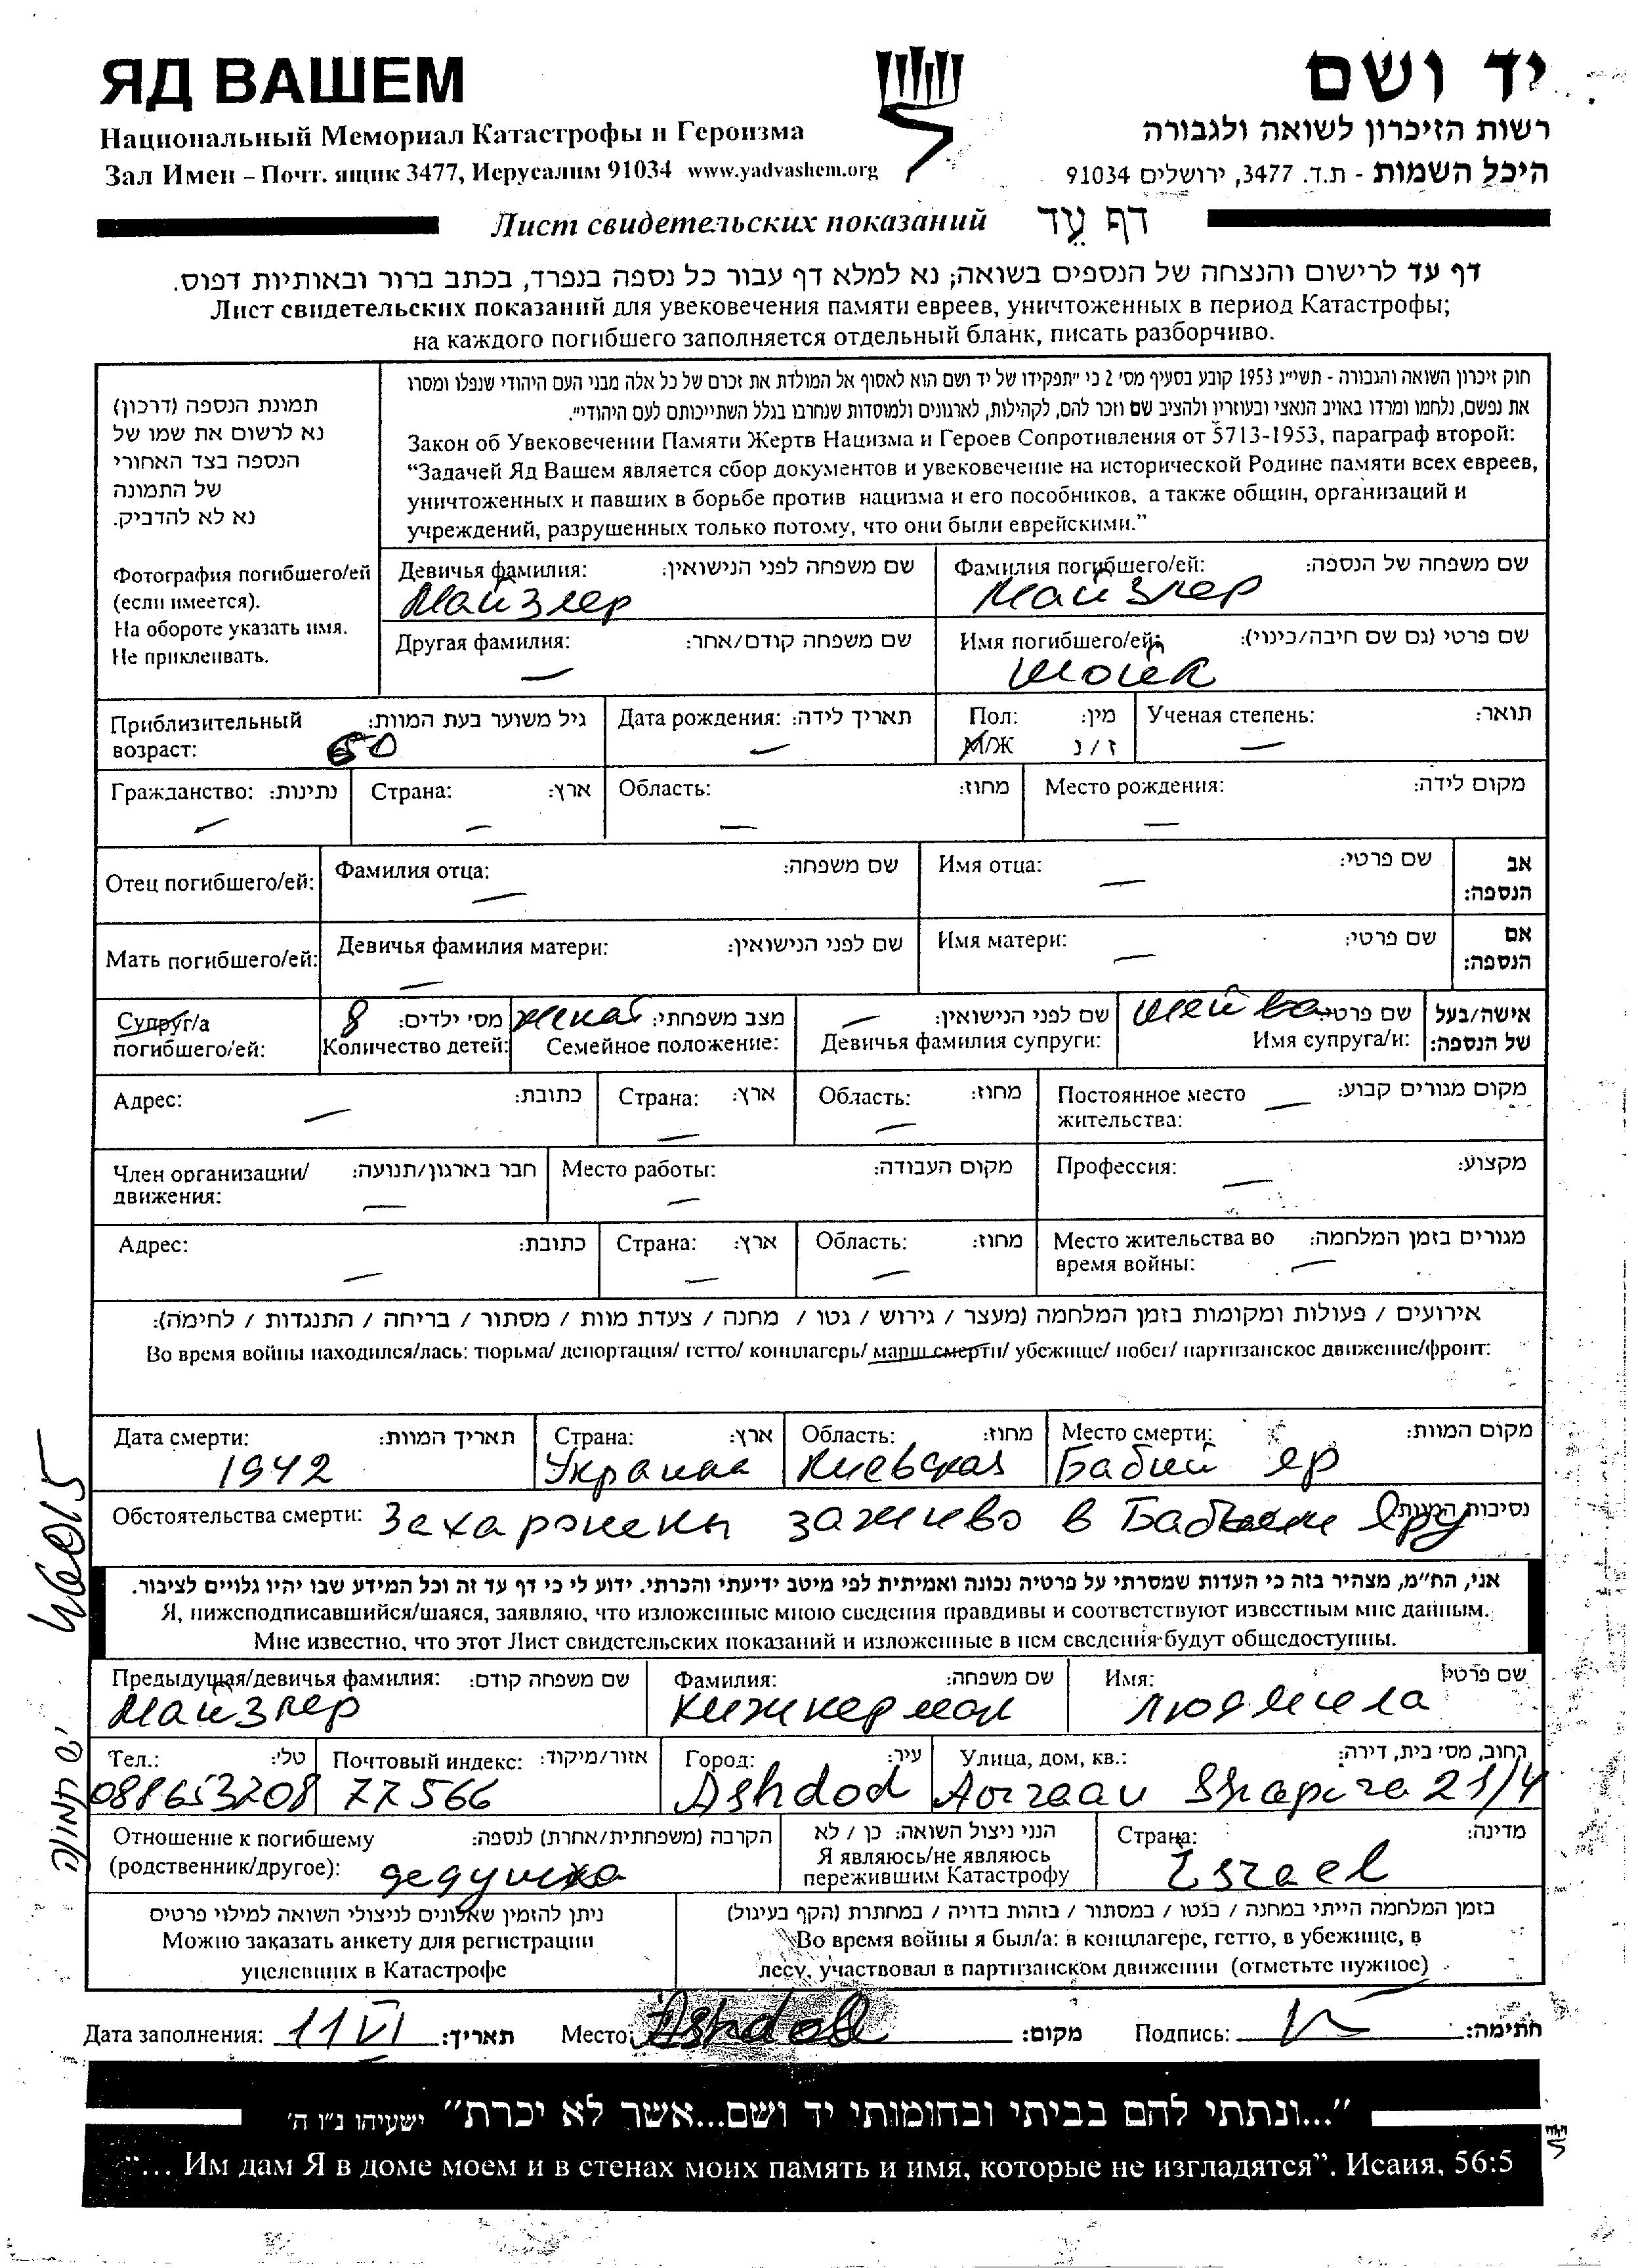 ЯД ВАШЕМ
יד ושם
Национальный Мемориал Катастрофы и Героизма
רשות הזיכרון לשואה ולגבורה
Зал Имен – Почт. ящик 3477, Иерусалим 91034 www.yadvashem.org
היכל השמות - ת.ד. 3477, ירושלים 91034
Лист свидетельских показаний דף עֵד
דף עד לרישום והנצחה של הנספים בשואה; נא למלא דף עבור כל נספה בנפרד, בכתב ברור ובאותיות דפוס.
Лист свидетельских показаний для увековечения памяти евреев, уничтоженных в период Катастрофы;
на каждого погибшего заполняется отдельный бланк, писать разборчиво.
תמונת הנספה (דרכון)
נא לרשום את שמו של
הנספה בצד האחורי
של התמונה
נא לא להדביק.
Фотография погибшего/ей
(если имеется).
На обороте указать имя.
Не приклеивать.
חוק זיכרון השואה והגבורה - תשי״ג 1953 קובע בסעיף מס׳ 2 כי ״תפקידו של יד ושם הוא לאסוף אל המולדת את זכרם של כל אלה מבני העם היהודי שנפלו ומסרו
את נפשם, נלחמו ומרדו באויב הנאצי ובעוזריו ולהציב שם וזכר להם, לקהילות, לארגונים ולמוסדות שנחרבו בגלל השתייכותם לעם היהודי״.
Закон об Увековечении Памяти Жертв Нацизма и Героев Сопротивления от 5713-1953, параграф второй:
“Задачей Яд Вашем является сбор документов и увековечение на исторической Родине памяти всех евреев,
уничтоженных и павших в борьбе против нацизма и его пособников, а также общин, организаций и
учреждений, разрушенных только потому, что они были еврейскими.”
Девичья фамилия: שם משפחה לפני הנישואין:
Майзлер
Фамилия погибшего/ей: שם משפחה של הנספה:
Майзлер
Другая фамилия: שם משפחה קודם/אחר:
—
Имя погибшего/ей: שם פרטי (גם שם חיבה/כינוי):
Шойк
Приблизительный גיל משוער בעת המוות:
возраст: 60
Дата рождения: תאריך לידה:
—
Пол: מין:
М/Ж ז / נ
Ученая степень: תואר:
—
Гражданство: נתינות:
—
Страна: ארץ:
—
Область: מחוז:
—
Место рождения: מקום לידה:
—
Отец погибшего/ей:
Фамилия отца: שם משפחה:
—
Имя отца: שם פרטי:
—
אב
הנספה:
Мать погибшего/ей:
Девичья фамилия матери: שם לפני הנישואין:
—
Имя матери: שם פרטי:
—
אם
הנספה:
Супруг/а
погибшего/ей:
8 מס׳ ילדים:
Количество детей:
женат מצב משפחתי:
Семейное положение:
— שם לפני הנישואין:
Девичья фамилия супруги:
Шейва שם פרטי:
Имя супруга/и:
אישה/בעל
של הנספה:
Адрес: כתובת:
—
Страна: ארץ:
—
Область: מחוז:
—
Постоянное место מקום מגורים קבוע:
жительства: —
Член организации/ חבר בארגון/תנועה:
движения: —
Место работы: מקום העבודה:
—
Профессия: מקצוע:
—
Адрес: כתובת:
—
Страна: ארץ:
—
Область: מחוז:
—
Место жительства во מגורים בזמן המלחמה:
время войны: —
אירועים / פעולות ומקומות בזמן המלחמה (מעצר / גירוש / גטו / מחנה / צעדת מוות / מסתור / בריחה / התנגדות / לחימה):
Во время войны находился/лась: тюрьма/ депортация/ гетто/ концлагерь/ марш смерти/ убежище/ побег/ партизанское движение/фронт:
Дата смерти: תאריך המוות:
1942
Страна: ארץ:
Украина
Область: מחוז:
Киевская
Место смерти: מקום המוות:
Бабий Яр
Обстоятельства смерти: Захаронены заживо в Бабьем Яру נסיבות המוות:
אני, הח״מ, מצהיר בזה כי העדות שמסרתי על פרטיה נכונה ואמיתית לפי מיטב ידיעתי והכרתי. ידוע לי כי דף עד זה וכל המידע שבו יהיו גלויים לציבור.
Я, нижеподписавшийся/шаяся, заявляю, что изложенные мною сведения правдивы и соответствуют известным мне данным.
Мне известно, что этот Лист свидетельских показаний и изложенные в нем сведения будут общедоступны.
Предыдущая/девичья фамилия: שם משפחה קודם:
Майзлер
Фамилия: שם משפחה:
Кижнерман
Имя: שם פרטי
Людмила
Тел.: טל׳:
088653208
Почтовый индекс: אזור/מיקוד:
77566
Город: עיר:
Ashdod
Улица, дом, кв.: רחוב, מס׳ בית, דירה:
Shapira 21/4
Отношение к погибшему הקרבה (משפחתית/אחרת) לנספה:
(родственник/другое): дедушка
הנני ניצול השואה: כן / לא
Я являюсь/не являюсь
пережившим Катастрофу
Страна: מדינה:
Israel
ניתן להזמין שאלונים לניצולי השואה למילוי פרטים
Можно заказать анкету для регистрации
уцелевших в Катастрофе
בזמן המלחמה הייתי במחנה / בגטו / במסתור / בזהות בדויה / במחתרת (הקף בעיגול)
Во время войны я был/а: в концлагере, гетто, в убежище, в
лесу, участвовал в партизанском движении (отметьте нужное)
Дата заполнения: 11 VI תאריך: Место: Ashdod מקום: Подпись: חתימה:
״...ונתתי להם בביתי ובחומותי יד ושם...אשר לא יכרת״ ישעיהו נ״ו ה׳
“… Им дам Я в доме моем и в стенах моих память и имя, которые не изгладятся”. Исаия, 56:5
יש תמונה